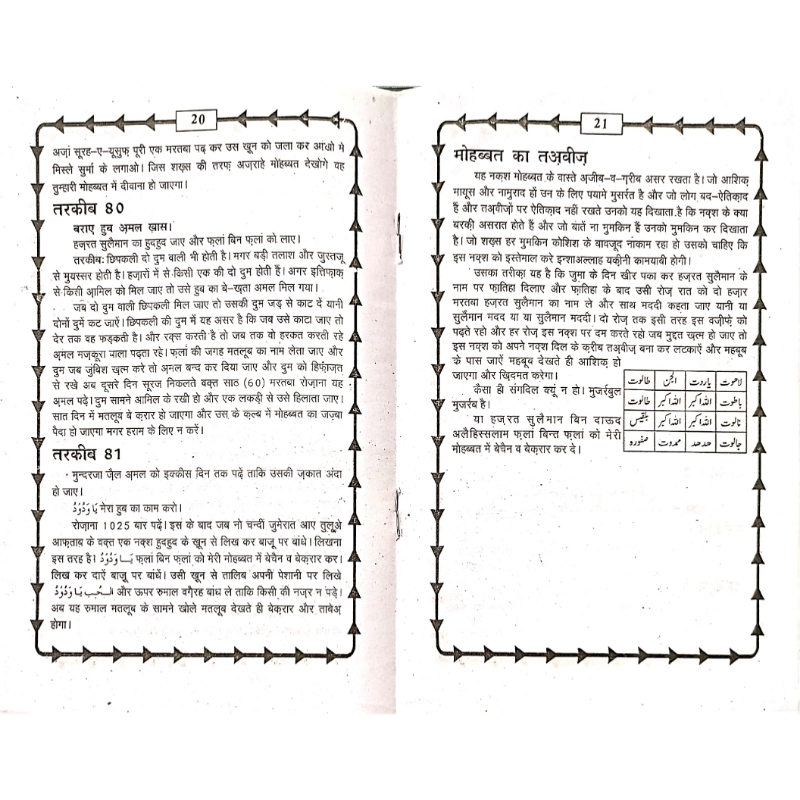 20
अज़ां सूरह-ए-यूसुफ़ पूरी एक मरतबा पढ़ कर उस खून को जला कर आंखो में
मिस्ले सुर्मा के लगाओ। जिस शख़्स की तरफ़ अज़राहे मोहब्बत देखोगे यह
तुम्हारी मोहब्बत में दीवाना हो जाएगा।
तरकीब 80
बराए हुब अ़मल ख़ास।
हज़रत सुलैमान का हुदहुद जाए और फ़लां बिन फ़लां को लाए।
तरकीबः छिपकली दो दुम वाली भी होती है। मगर बड़ी तलाश और जुस्तजू
से मुयस्सर होती है। हज़ारों में से किसी एक की दो दुम होती हैं। अगर इत्तिफ़ाक़
से किसी आ़मिल को मिल जाए तो उसे हुब का बे-ख़ता अ़मल मिल गया।
जब दो दुम वाली छिपकली मिल जाए तो उसकी दुम जड़ से काट दें यानी
दोनों दुमें कट जाएं। छिपकली की दुम में यह असर है कि जब उसे काटा जाए तो
देर तक वह फड़कती है। और रक़्स करती है तो जब तक वो हरकत करती रहे
अ़मल मज़कूरा पाला पढ़ता रहे। फ़लां की जगह मतलूब का नाम लेता जाए और
दुम जब जुंबिश ख़त्म करे तो अ़मल बन्द कर दिया जाए और दुम को हिफ़ाज़त
से रखे अब दूसरे दिन सूरज निकलते वक़्त सात (60) मरतबा रोज़ाना यह
अ़मल पढ़े। दुम सामने आ़मिल के रखी हो और एक लकड़ी से उसे हिलाता जाए।
सात दिन में मतलूब बे क़रार हो जाएगा और उस के क़ल्ब में मोहब्बत का जज़्बा
पैदा हो जाएगा मगर हराम के लिए न करें।
तरकीब 81
मुन्दरजा ज़ैल अ़मल को इक्कीस दिन तक पढ़ें ताकि उसकी ज़कात अदा
हो जाए।
يَا وَدُوْدُ मेरा हुब का काम करो।
रोज़ाना 1025 बार पढ़ें। इस के बाद जब नो चन्दी जुमेरात आए तुलूअे
आफ़ताब के वक़्त एक नक़्श हुदहुद के ख़ून से लिख कर बाज़ू पर बांधे। लिखना
इस तरह है। يَا وَدُوْدُ फ़लां बिन फ़लां को मेरी मोहब्बत में बेचैन व बेक़रार कर।
लिख कर दाएं बाज़ू पर बांधें। उसी ख़ून से तालिब अपनी पेशानी पर लिखे
الحُب يَا وَدُوْدُ और ऊपर रुमाल वग़ैरह बांध ले ताकि किसी की नज़र न पड़े।
अब यह रुमाल मतलूब के सामने खोले मतलूब देखते ही बेक़रार और ताबेअ़
होगा।
21
मोहब्बत का तअ़वीज़
यह नक़्श मोहब्बत के वास्ते अ़जीब-व-ग़रीब असर रखता है। जो आशिक़
मायूस और नामुराद हों उन के लिए पयामे मुसर्रत है और जो लोग बद-ऐतिक़ाद
हैं और तअ़वीज़ों पर ऐतिक़ाद नहीं रखते उनको यह दिखाता है कि नक़्श के क्या
बरक़ी असरात होते हैं और जो बातें ना मुमकिन हैं उनको मुमकिन कर दिखाता
है। जो शख़्स हर मुमकिन कोशिश के बावजूद नाकाम रहा हो उसको चाहिए कि
इस नक़्श को इस्तेमाल करे इन्शाअल्लाह यक़ीनी कामयाबी होगी।
उसका तरीक़ा यह है कि जुमा के दिन खीर पका कर हज़रत सुलैमान के
नाम पर फ़ातिहा दिलाए और फ़ातिहा के बाद उसी रोज़ रात को दो हज़ार
मरतबा हज़रत सुलैमान का नाम ले और साथ मददी कहता जाए यानी या
सुलैमान मदद या या सुलैमान मददी। दो रोज़ तक इसी तरह इस वज़ीफ़े को
पढ़ते रहो और हर रोज़ इस नक़्श पर दम करते रहो जब मुद्दत ख़त्म हो जाए तो
इस नक़्श को अपने नक़्श दिल के क़रीब तअ़वीज़ बना कर लटकाऐं और महबूब
के पास जाऐं महबूब देखते ही आशिक़ हो
जाएगा और ख़िदमत करेगा।
कैसा ही संगदिल क्यूं न हो। मुजर्रबुल
मुजर्रब है।
या हज़रत सुलैमान बिन दाऊद
अलैहिस्सलाम फ़लां बिन्त फ़लां को मेरी
मोहब्बत में बेचैन व बेक़रार कर दे।
لاھوت یاروت الجن طالوت
باطوت اللہ اکبر اللہ اکبر طالوت
نالوت اللہ اکبر اللہ اکبر بلقیس
جالوت حدحد ممدوت صفورہ